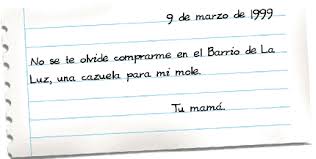 9 de marzo de 1999
No se te olvide comprarme en el Barrio de La
Luz, una cazuela para mi mole.
Tu mamá.